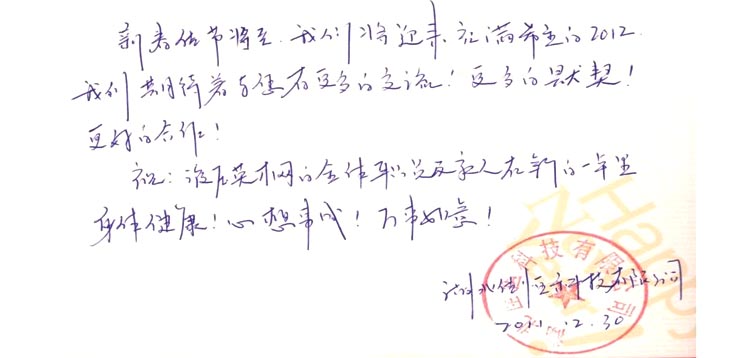 新春佳节将至,我们将迎来充满希望的2012.
我们期待着与您有更多的交流!更多的默契!
更好的合作!
祝:英才网的全体职员及家人在新的一年里
身体健康!心想事成!万事如意!
科技有限公司
湖北佳恒科技有限公司
2011.12.30
Happy